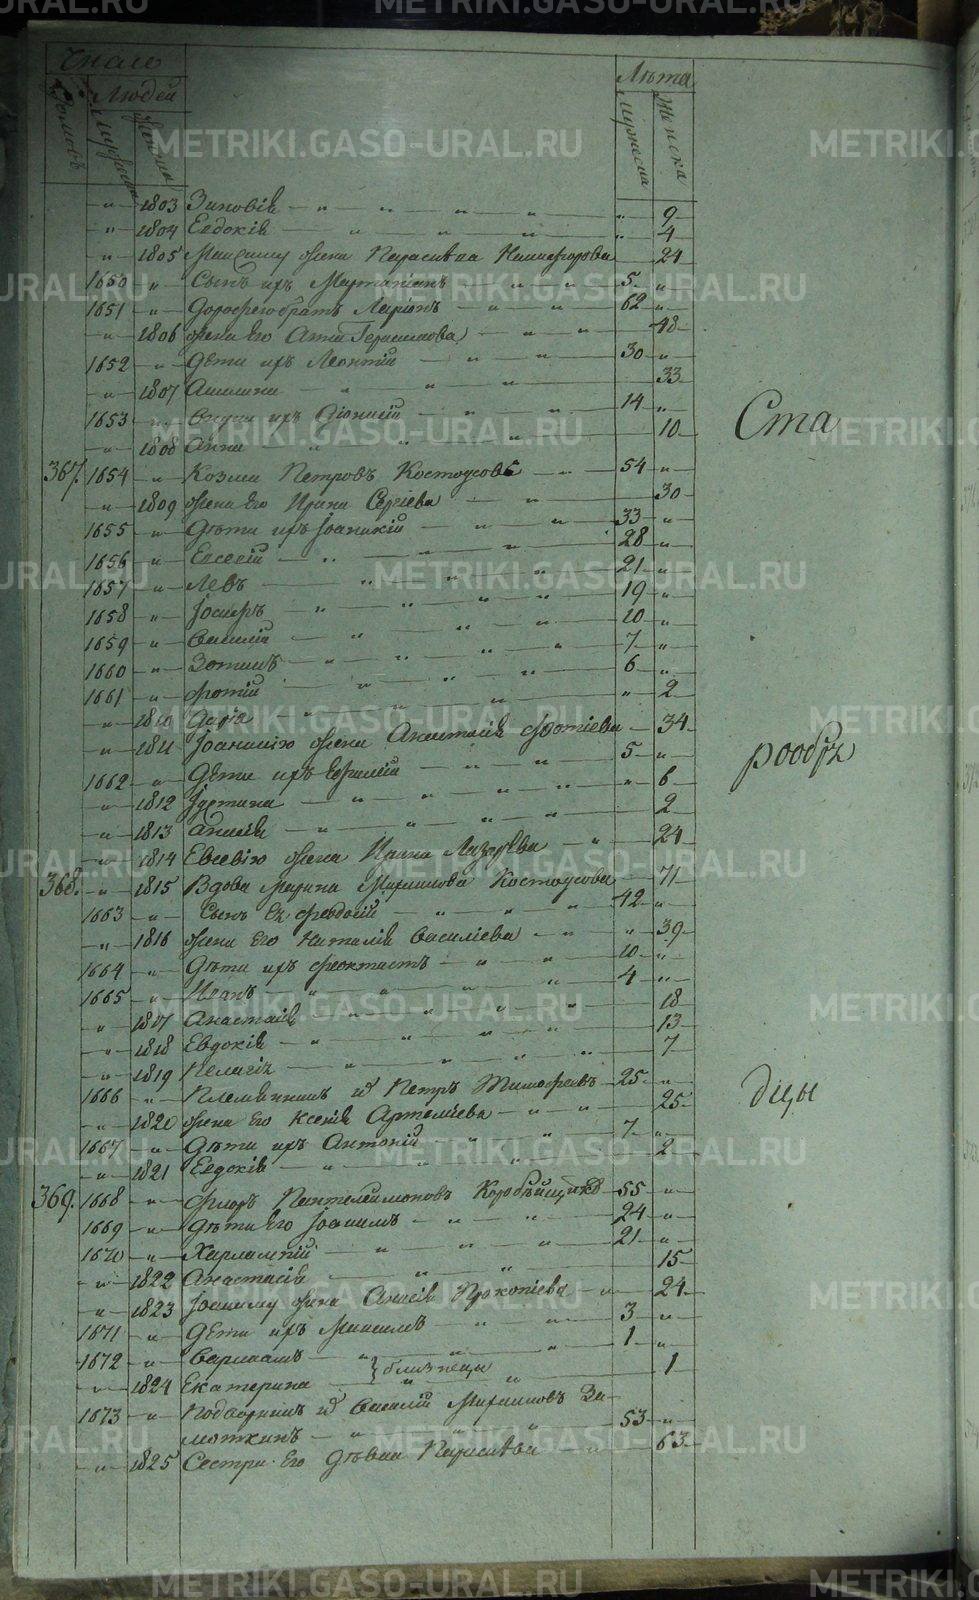 METRIKI.GASO-URAL.RU
Число Лѣта
Домовъ Людей Мужеска Женска
„ — 1803 Зиновія — „ — „ — „ — „ 9
„ — 1804 Евдокія — „ — „ — „ 4
„ — 1805 Максиму жена Параскева Никифорова 24
1650 — „ Сынъ ихъ — „ — „ 5 — „
1651 — „ братъ Ларіонъ — „ — „ 62 — „
„ — 1806 жена Его Анна Герасимова — „ — „ 48
1652 — „ Дѣти ихъ Леонтій — „ — „ 30 — „
„ — 1807 — „ — „ — „ 33
1653 — „ ихъ Діонисій — „ — „ 14 — „
„ — 1808 Анна — „ — „ — „ 10
Ста
367. 1654 — „ Козма Петровъ Костоусовъ — „ 54 — „
„ — 1809 жена Его Ирина Сергіева — „ — „ 30
1655 — „ Дѣти ихъ Іоанникій — „ — „ 33 — „
1656 — „ Евсевій — „ — „ — „ 28 — „
1657 — „ Левъ — „ — „ — „ 21 — „
1658 — „ Іосифъ — „ — „ — „ — „ 19 — „
1659 — „ Василій — „ — „ — „ 10 — „
1660 — „ Зотикъ — „ — „ — „ — „ 7 — „
1661 — „ Фотій — „ — „ — „ 6 — „
„ — 1810 Дарія — „ — „ — „ „ — 2
„ — 1811 Іоаникію жена Анастасія Фотіева — 34
рообр
1662 — „ Дѣти ихъ — „ — „ 5 — „
„ — 1812 Іустина — „ — „ — „ — „ „ — 6
„ — 1813 — „ — „ — „ 2
„ — 1814 Евсевію жена Ирина Лазарева — „ 24
368. „ — 1815 Вдова Марина Михаилова Костоусова — 71
1663 — „ Сынъ Ея Феодосій — „ — „ — „ 42 — „
„ — 1816 жена Его Наталія Василіева — „ — „ 39
1664 — „ Дѣти ихъ Феоктистъ — „ — „ 10 — „
1665 — „ Иванъ — „ — „ — „ — „ 4 — „
„ — 1817 Анастасія — „ — „ — „ — „ 18
„ — 1818 Евдокія — „ — „ — „ — „ 13
„ — 1819 Пелагія — „ — „ — „ — „ 7
дцы
1666 — „ Племянникъ Петръ Тимофеевъ — 25 — „
„ — 1820 жена Его Ксенія Артеміева — „ — „ 25
1667 — „ Дѣти ихъ Антоній — „ — „ 7 — „
„ — 1821 Евдокія — „ — „ — „ 2
369. 1668 — „ Флоръ Пантелеимоновъ Коробейщиковъ 55 — „
1669 — „ Дѣти Его Іоакимъ — „ — „ — „ 24 — „
1670 — „ Харлампій — „ — „ — „ 21 — „
„ — 1822 Анастасія — „ — „ 15
„ — 1823 Іоакиму жена Анисія Прокопіева — „ 24
1671 — „ Дѣти ихъ Максимъ — „ — „ 3 — „
1672 — „ Варлаамъ — „ — „ — „ 1 — „
„ — 1824 Екатерина — „ } близнецы „ 1
1673 — „ Василій Михаиловъ За-
моткинъ — „ — „ — „ 53 — „
„ — 1825 Сестра Его дѣвка Параскева — „ 63